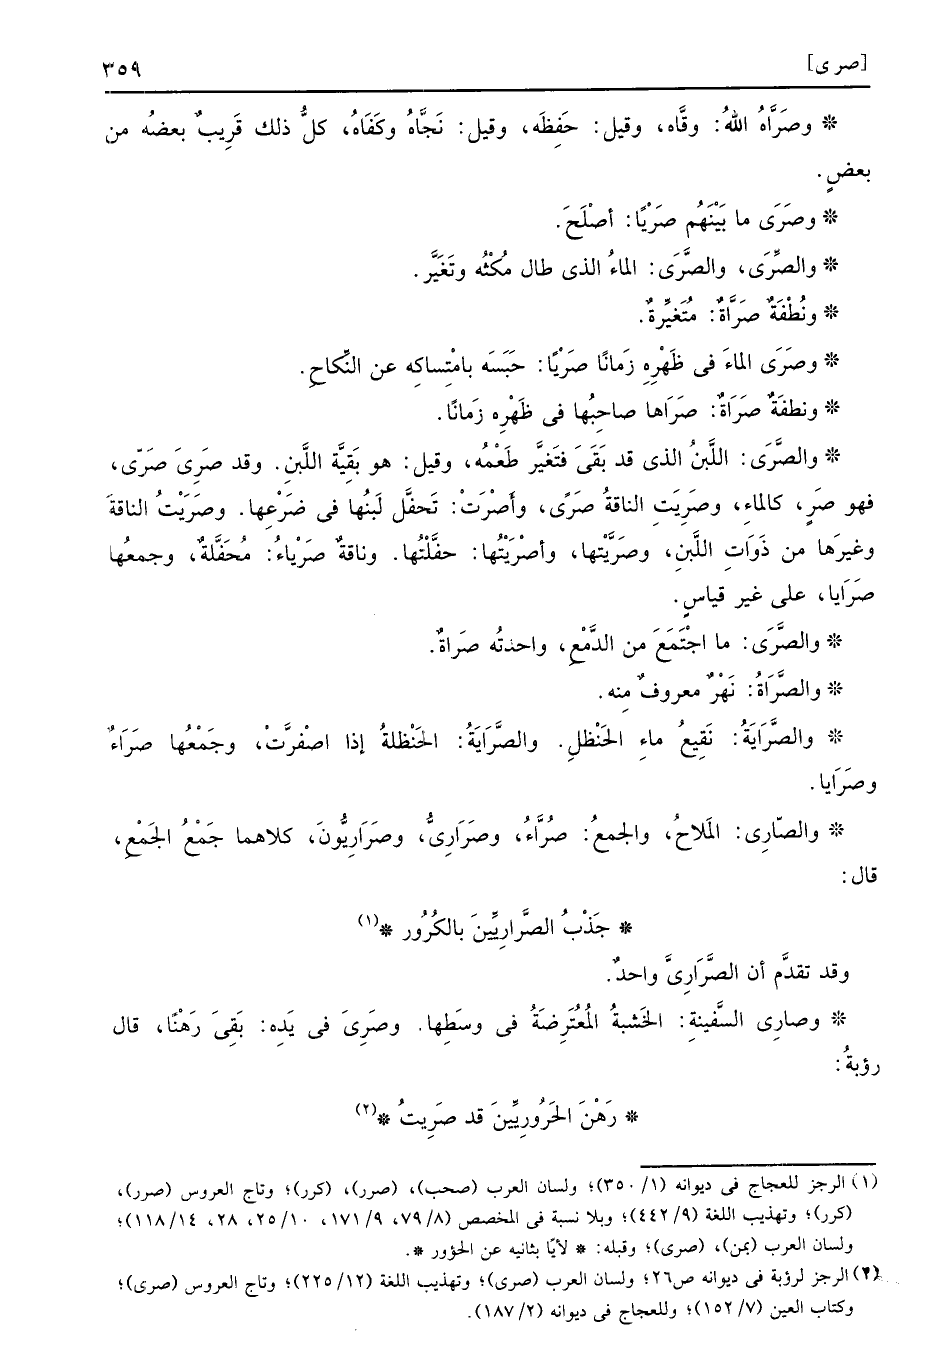 [صرى] ٣٥٩
❊ وصَرَّاهُ اللهُ: وقَّاه، وقيل: حَفِظَه، وقيل: نَجَّاهُ وكَفَاهُ، كلُّ ذلك قَرِيبٌ بعضُه من
بعضٍ.
❊ وصَرَى ما بَيْنَهُم صَرْيًا: أصْلَحَ.
❊ والصِّرَى، والصَّرَى: الماءُ الذى طال مُكْثُه وتَغَيَّر.
❊ ونُطْفَةٌ صَرَّاةٌ: مُتَغيِّرةٌ.
❊ وصَرَى الماءَ فى ظَهْرِهِ زَمانًا صَرْيًا: حَبَسَه بامْتِساكِه عن النِّكاحِ.
❊ ونطفَةٌ صَرَاةٌ: صَرَاها صاحبُها فى ظَهْرِه زَمانًا.
❊ والصَّرَى: اللَّبنُ الذى قد بَقَىَ فتَغيَّر طَعْمُه، وقيل: هو بَقِيَّة اللَّبنِ. وقد صَرِىَ صَرًى،
فهو صَرٍ، كالماءِ، وصَرِيَتِ الناقةُ صَرًى، وأصْرَتْ: تَحفَّل لَبنُها فى ضَرْعِها. وصَرَيْتُ الناقةَ
وغيرَها من ذَوَاتِ اللَّبنِ، وصَرَّيْتها، وأصْرَيْتُها: حفَّلْتُها. وناقةٌ صَرْياءُ: مُحَفَّلةٌ، وجمعُها
صَرَايا، على غير قياسٍ.
❊ والصَّرَى: ما اجْتَمَعَ من الدَّمْعِ، واحدتُه صَراةٌ.
❊ والصَّرَاةُ: نَهْرٌ معروفٌ منه.
❊ والصَّرَايَةُ: نَقِيعُ ماءِ الحَنْظلِ. والصَّرَايَةُ: الحَنْظلةُ إذا اصفرَّتْ، وجَمْعُها صَرَاءٌ
وصَرَايا.
❊ والصّارِى: المَلاحُ، والجمعُ: صُرَّاءُ، وصَرَارِىُّ، وصَرَارِيُّونَ، كلاهما جَمْعُ الجَمْعِ،
قال:
❊ جَذْبُ الصَّرارِيِّينَ بالكُرُور ❊(١)
وقد تقدَّم أن الصَّرَارِىَّ واحدٌ.
❊ وصارِى السَّفينةِ: الخَشبةُ المُعْتَرِضَةُ فى وسَطِها. وصَرِىَ فى يَدِه: بَقِىَ رَهْنًا، قال
رؤبةُ:
❊ رَهْنَ الحَرُورِيِّينَ قد صَرِيتُ ❊(٢)
(١) الرجز للعجاج فى ديوانه (١/ ٣٥٠)؛ ولسان العرب (صحب)، (صرر)، (كرر)؛ وتاج العروس (صرر)،
(كرر)؛ وتهذيب اللغة (٩/ ٤٤٢)؛ وبلا نسبة فى المخصص (٨/ ٧٩، ٩/ ١٧١، ١٠/ ٢٥، ٢٨، ١٤/ ١١٨)؛
ولسان العرب (يمن)، (صرى)؛ وقبله: ❊ لأيًا بثانيه عن الحؤور ❊.
(٢) الرجز لرؤبة فى ديوانه ص٢٦؛ ولسان العرب (صرى)؛ وتهذيب اللغة (١٢/ ٢٢٥)؛ وتاج العروس (صرى)؛
وكتاب العين (٧/ ١٥٢)؛ وللعجاج فى ديوانه (٢/ ١٨٧).